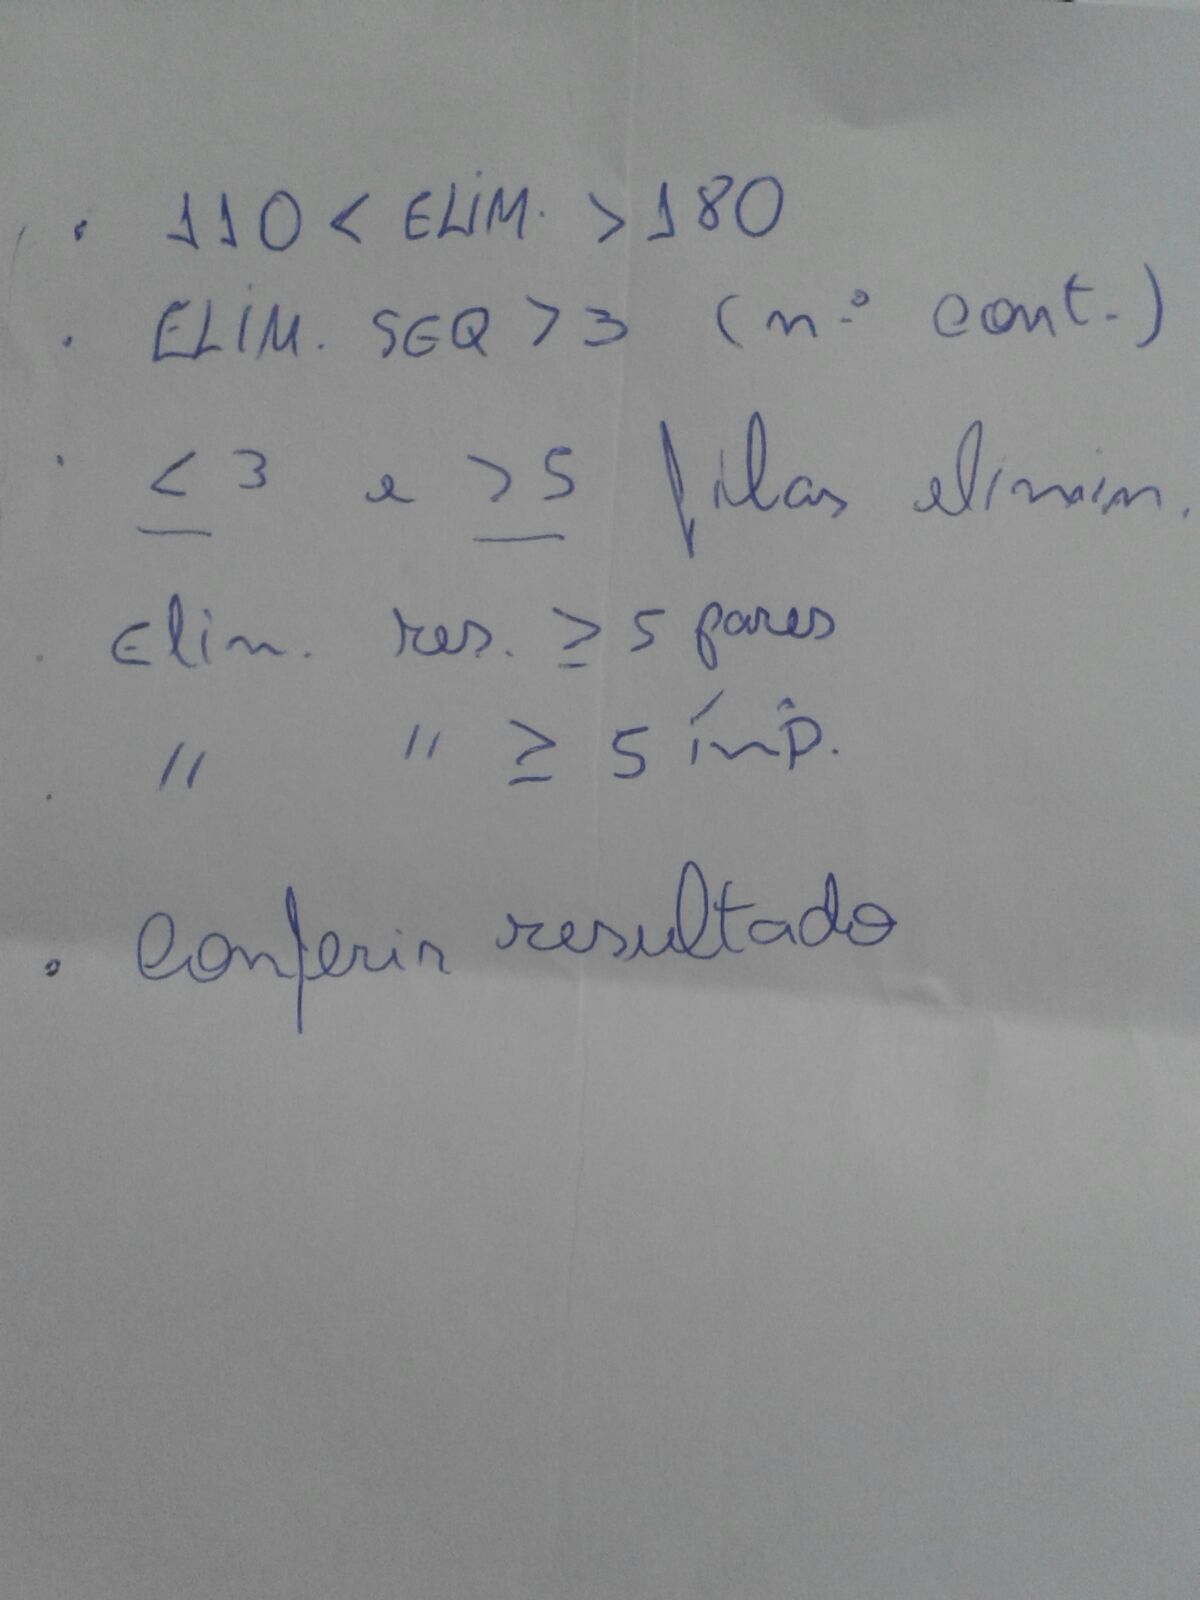 · 110 < ELIM. > 180
· ELIM. SEQ > 3 (n.º cont.)
· < 3 e > 5 filas elimin.
· Elim. res. ≥ 5 pares
· " " ≥ 5 ímp.
· Conferir resultado